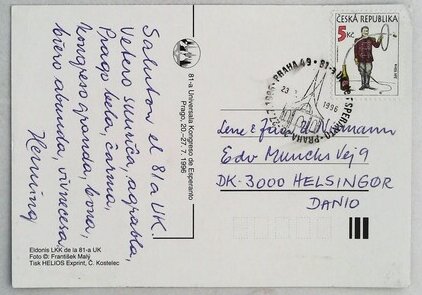 Saluton el 81a UK.
Vetero sunica, agrabla,
Prago bela, ĉarma,
kongreso granda, bona,
biero abunda, necesa,
Henning
Eldonis LKK de la 81-a UK
Foto © František Malý
Tisk HELiOS Exprint, Č. Kostelec
81-a Universala Kongreso de Esperanto
Prago, 20.–27.7.1996
ČESKÁ REPUBLIKA
5 Kč
PRAHA 49
81-a
ESPERANTO-PRAHA
1996
Lene & 
Edv Munchs Vej 9
DK-3000 HELSINGØR
DANIO